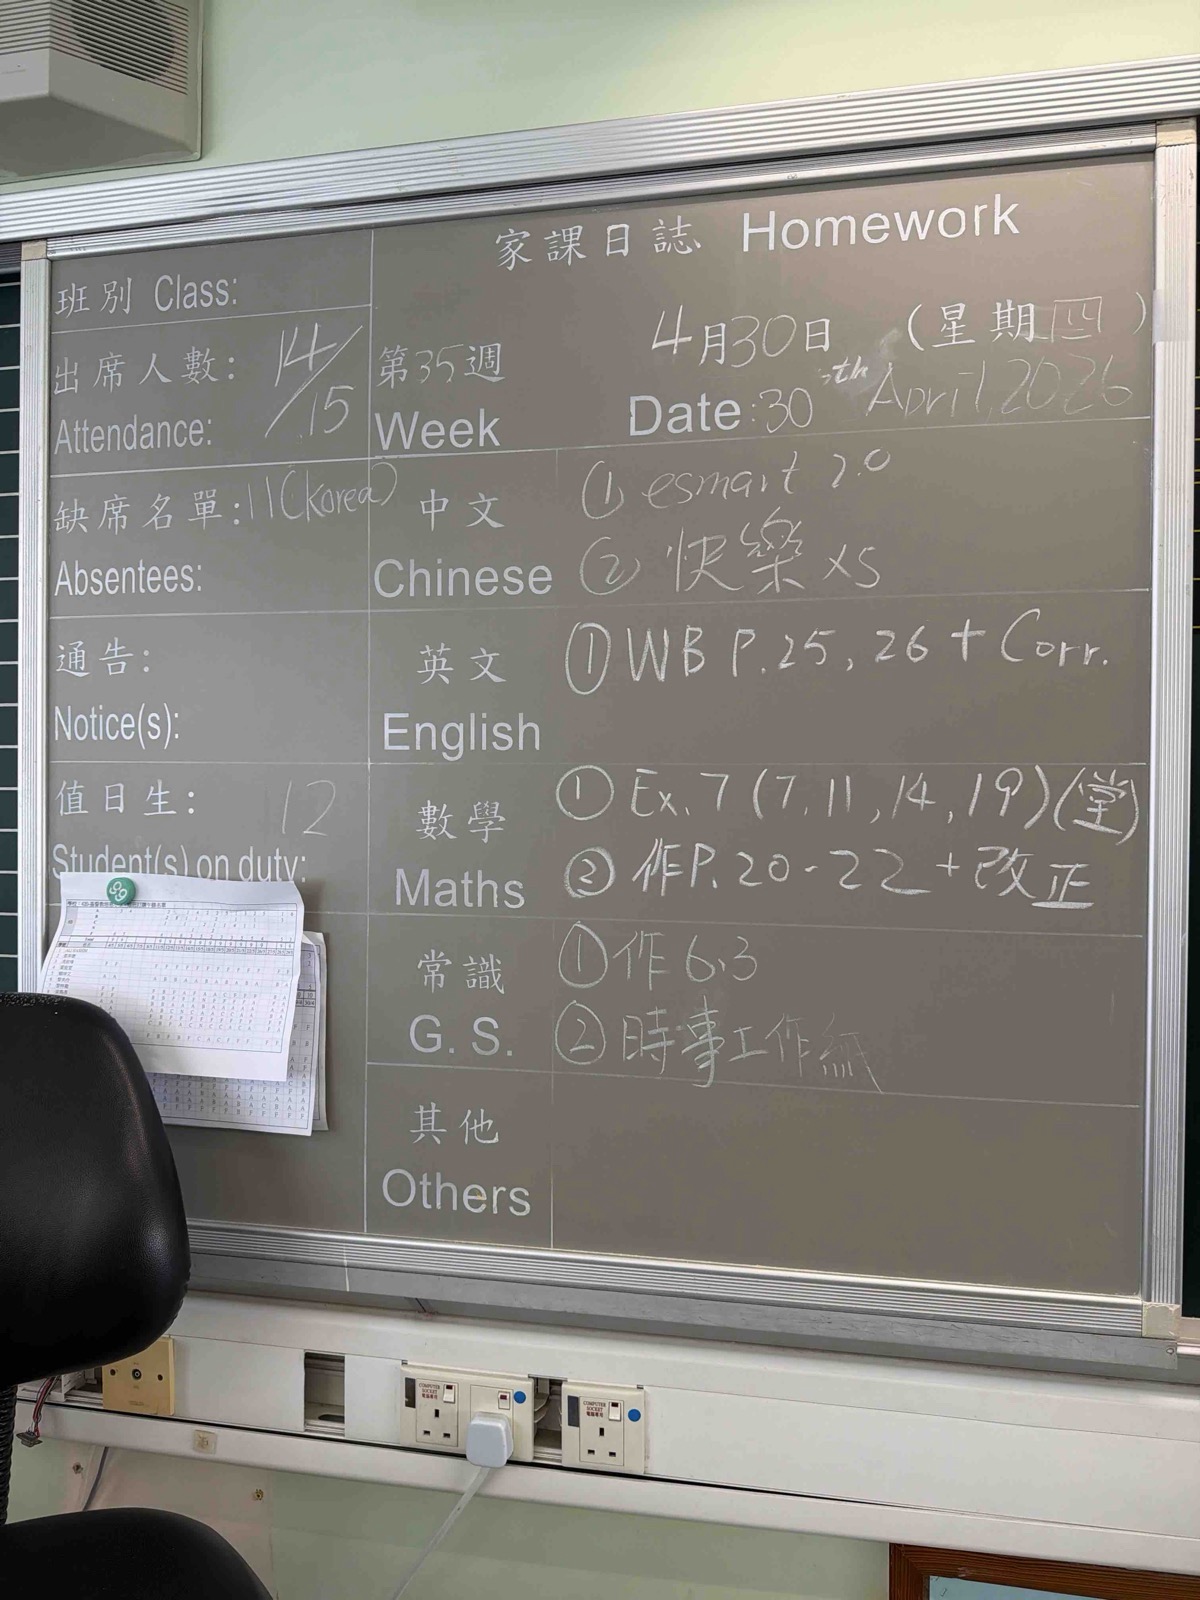 家課日誌 Homework
班別 Class:
4月30日 (星期四)
出席人數: 14/15
Attendance:
第35週
Week
Date: 30th April, 2026
缺席名單: 11(Korea)
Absentees:
中文
Chinese
① esmart 2.0
② 快樂 x5
通告:
Notice(s):
英文
English
① WB P.25, 26 + Corr.
值日生: 12
Student(s) on duty:
數學
Maths
① Ex. 7 (7, 11, 14, 19) (堂)
② 作P. 20-22 + 改正
常識
G. S.
① 作 6.3
② 時事工作紙
其他
Others
COMPUTER
SOCKET
電腦專用
COMPUTER
SOCKET
電腦專用